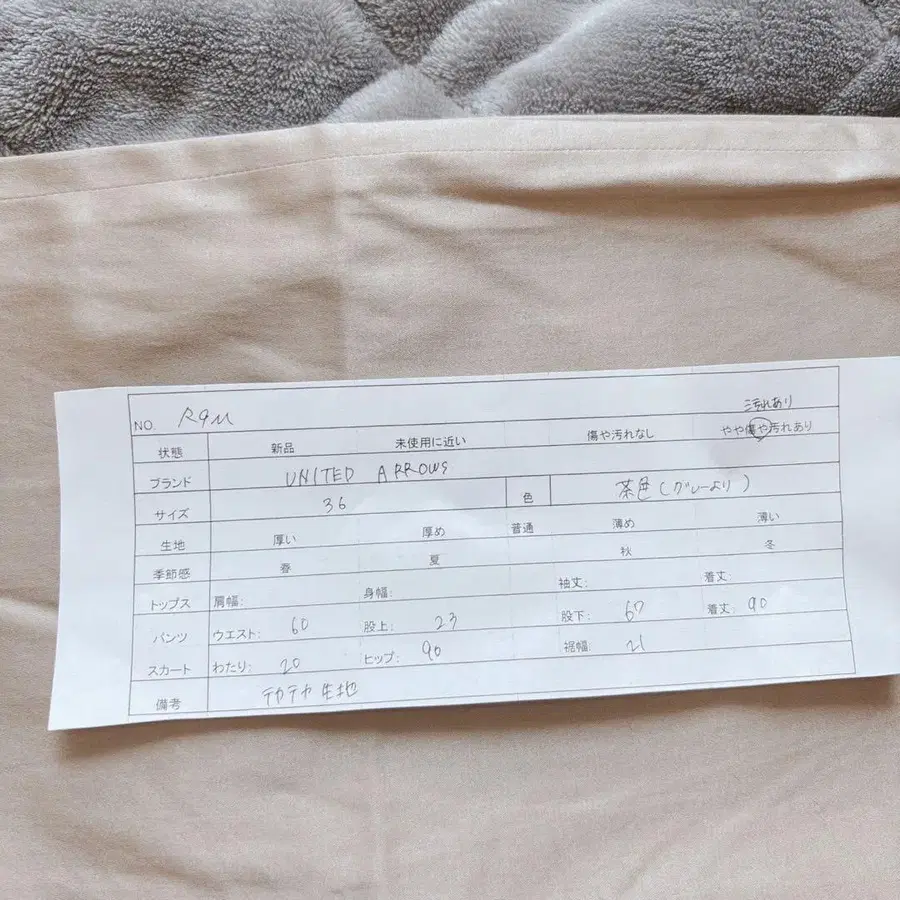 NO. R9M
三汚れあり
状態 新品 未使用に近い 傷や汚れなし やや傷や汚れあり
ブランド UNITED ARROWS
サイズ 36 色 茶色(グレーより)
生地 厚い 厚め 普通 薄め 薄い
季節感 春 夏 秋 冬
トップス 肩幅: 身幅: 袖丈: 着丈:
パンツ ウエスト: 60 股上: 23 股下: 67 着丈: 90
スカート わたり: 20 ヒップ: 90 裾幅: 21
備考 テカテカ生地